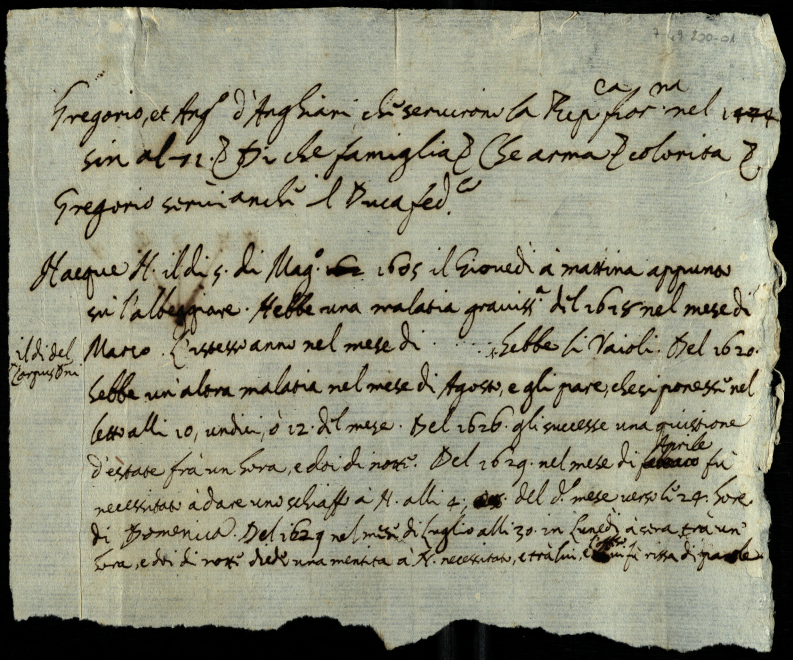 Gregorio, et Ang.o d'Anghiari, che servirono la Rep.ca fior.na nel 1474
sin al 71. Di che famiglia Che arma colorita
Gregorio servì anche il Duca fed.co
Nacque N. il di 5. di Mag.o 1605 il Giovedì à mattina appunto
su l'albeggiare. Hebbe una malatia graviss.a del 1618 nel mese di
Marzo. L'istesso anno nel mese di . . . hebbe li Vaioli. Del 1620.
il di del
Corpus Dni
hebbe un'altra malatia nel mese di Agosto, e gli pare, che si ponesse nel
letto alli 10, undici, ò 12. del mese. Del 1626. gli successe una quistione
d'estate frà un hora, e doi di notte. Del 1629. nel mese di Aprile fù
necessitato à dare uno schiaffo à N. alli 4, del d.o mese verso le 24. hore
di Domenica. Del 1629 nel mese di Luglio alli 30. in Lunedì à sera trà un'
hora, e doi di notte diede una mentita à N. necessitato, e trà lui, e fù rissa di parole